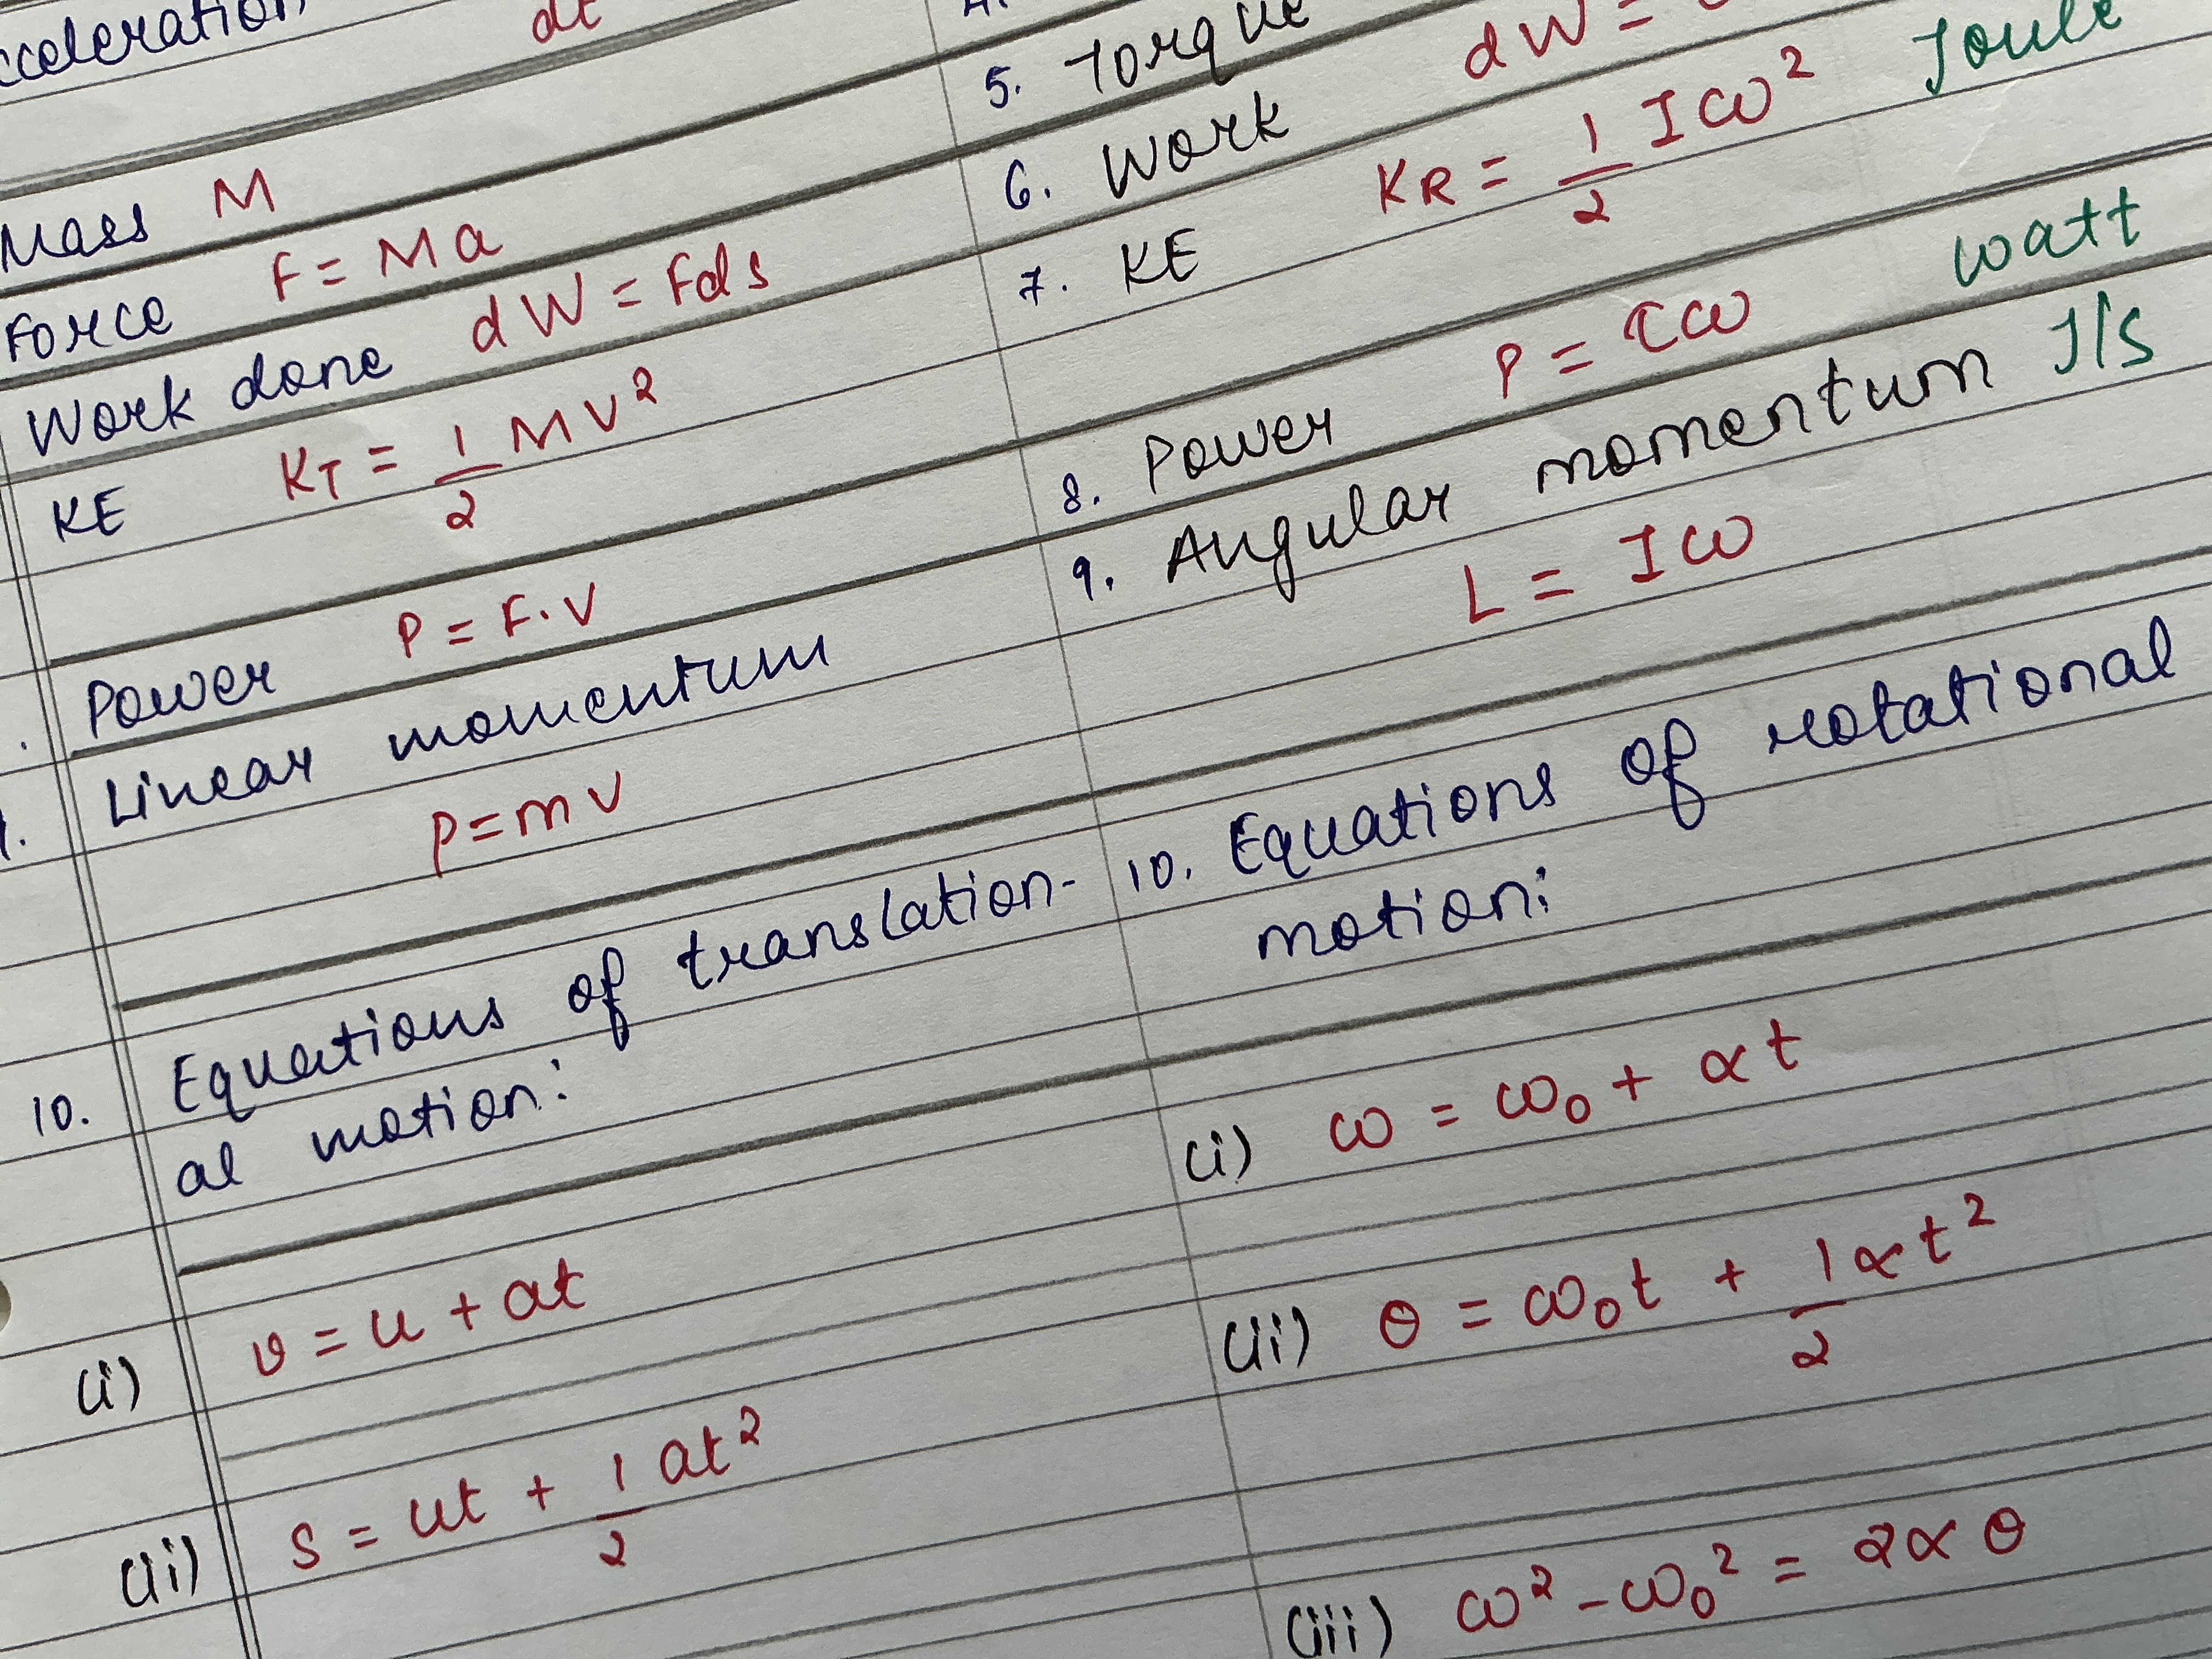 cceleration
dt
Mass M
Force F = Ma
Work done dW = Fds
KE KT = 1/2 MV²
Power P = F.V
Linear momentum
p = mv
10. Equations of translation-
al motion:
(i) v = u + at
(ii) s = ut + 1/2 at²
5. Torque
6. Work dW =
7. KE KR = 1/2 Iω² Joule
8. Power P = τω watt
9. Angular momentum J/s
L = Iω
10. Equations of rotational
motion:
(i) ω = ω₀ + αt
(ii) θ = ω₀t + 1/2 αt²
(iii) ω² - ω₀² = 2αθ